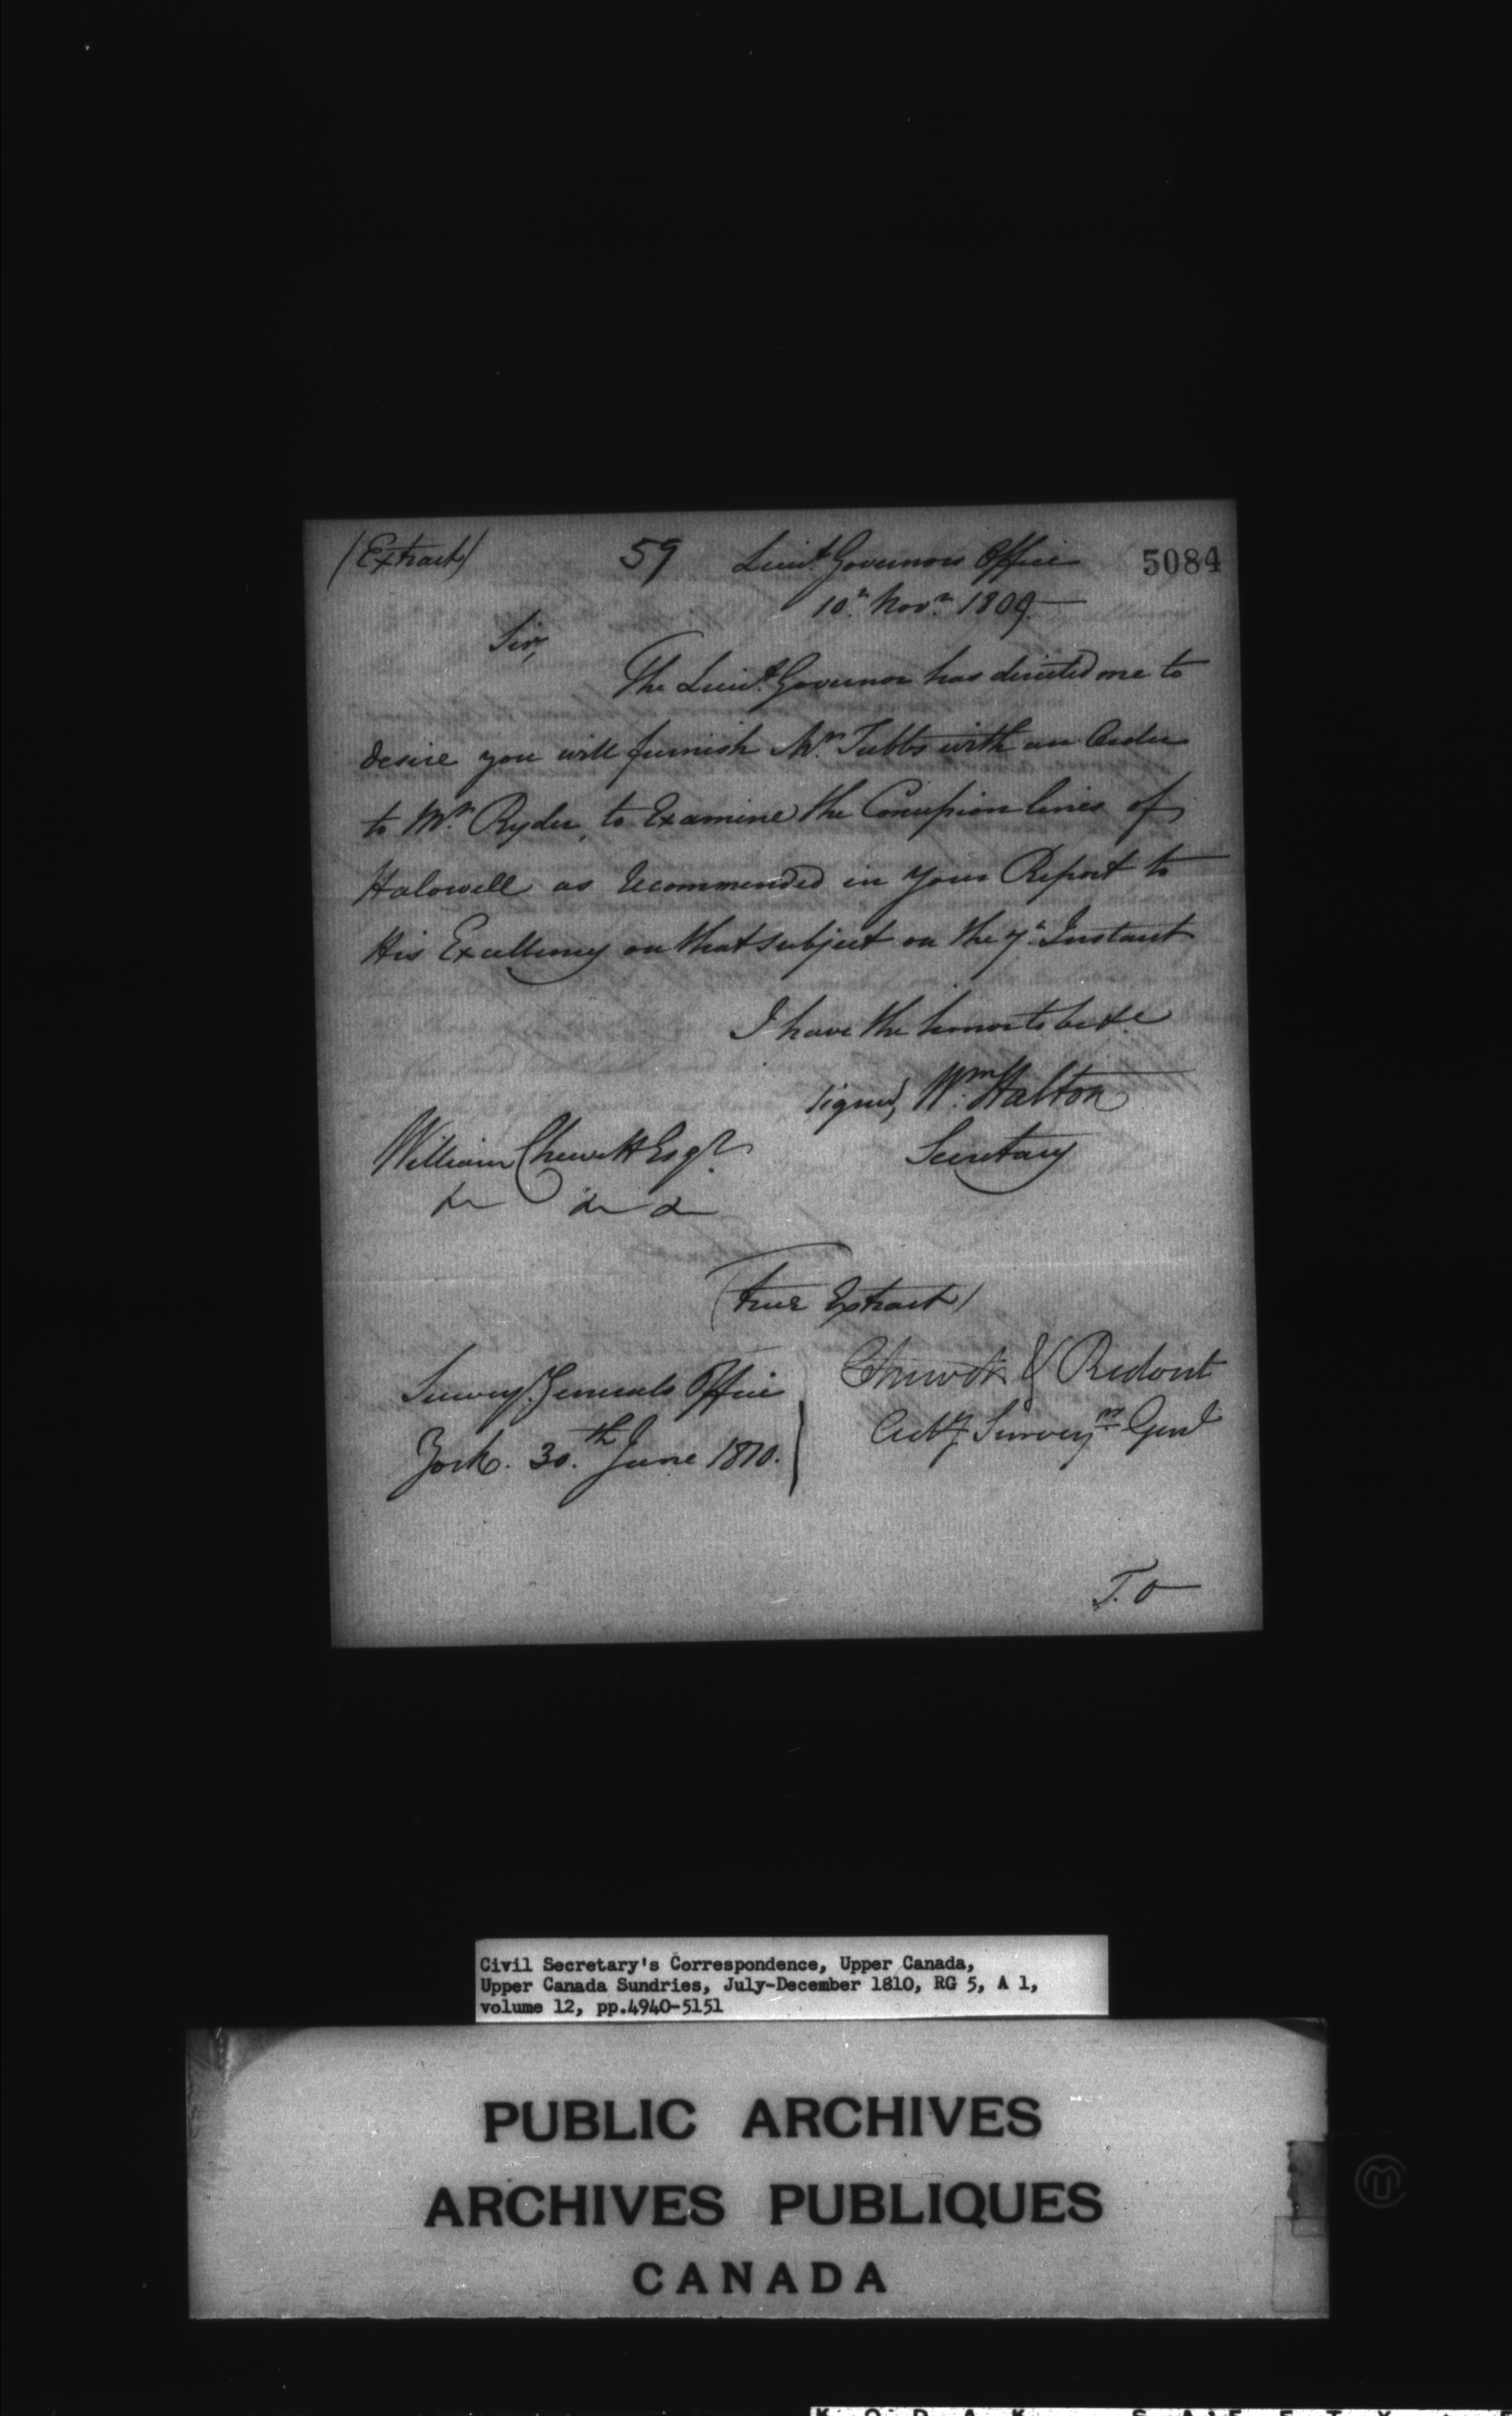 (Extract) 59 Lieut. Governors Office 5084
10th Novr. 1809
Sir,
The Lieut. Governor has directed me to
desire you will furnish Mr. Tubbs with an Order
to Mr. Ryder, to Examine the Concession lines of
Halowell as recommended in your Report to
His Excellency on that subject on the 7th Instant
I have the honor to be &c
signed, Wm. Halton
Secretary
William Chewett Esqr.
&c &c &c
(True Extract)
Survey. Generals Office
York. 30.th June 1810.
Chewett & Ridout
Actg Surveyrs Genl
T. O
Civil Secretary's Correspondence, Upper Canada,
Upper Canada Sundries, July-December 1810, RG 5, A 1,
volume 12, pp.4940-5151
PUBLIC ARCHIVES
ARCHIVES PUBLIQUES
CANADA